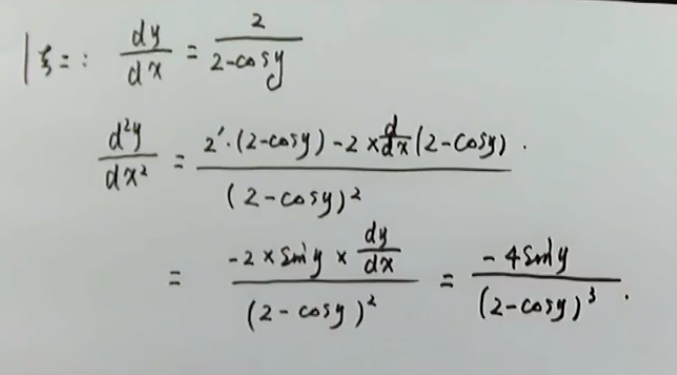 dy/dx = 2/(2-cosy)
d²y/dx² = (2'·(2-cosy)-2×d/dx(2-cosy))/(2-cosy)².
= (-2×siny×dy/dx)/(2-cosy)² = (-4siny)/(2-cosy)³.